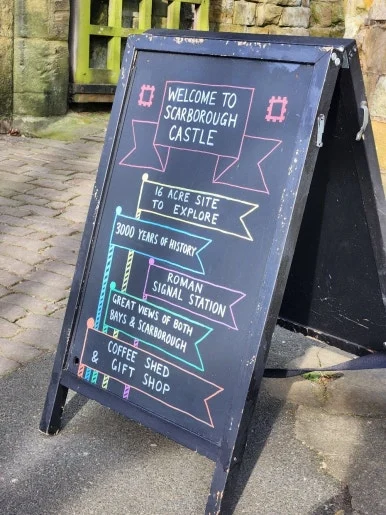 WELCOME TO
SCARBOROUGH
CASTLE
16 ACRE SITE
TO EXPLORE
3000 YEARS OF HISTORY
ROMAN
SIGNAL STATION
GREAT VIEWS OF BOTH
BAYS & SCARBOROUGH
COFFEE SHED
& GIFT SHOP